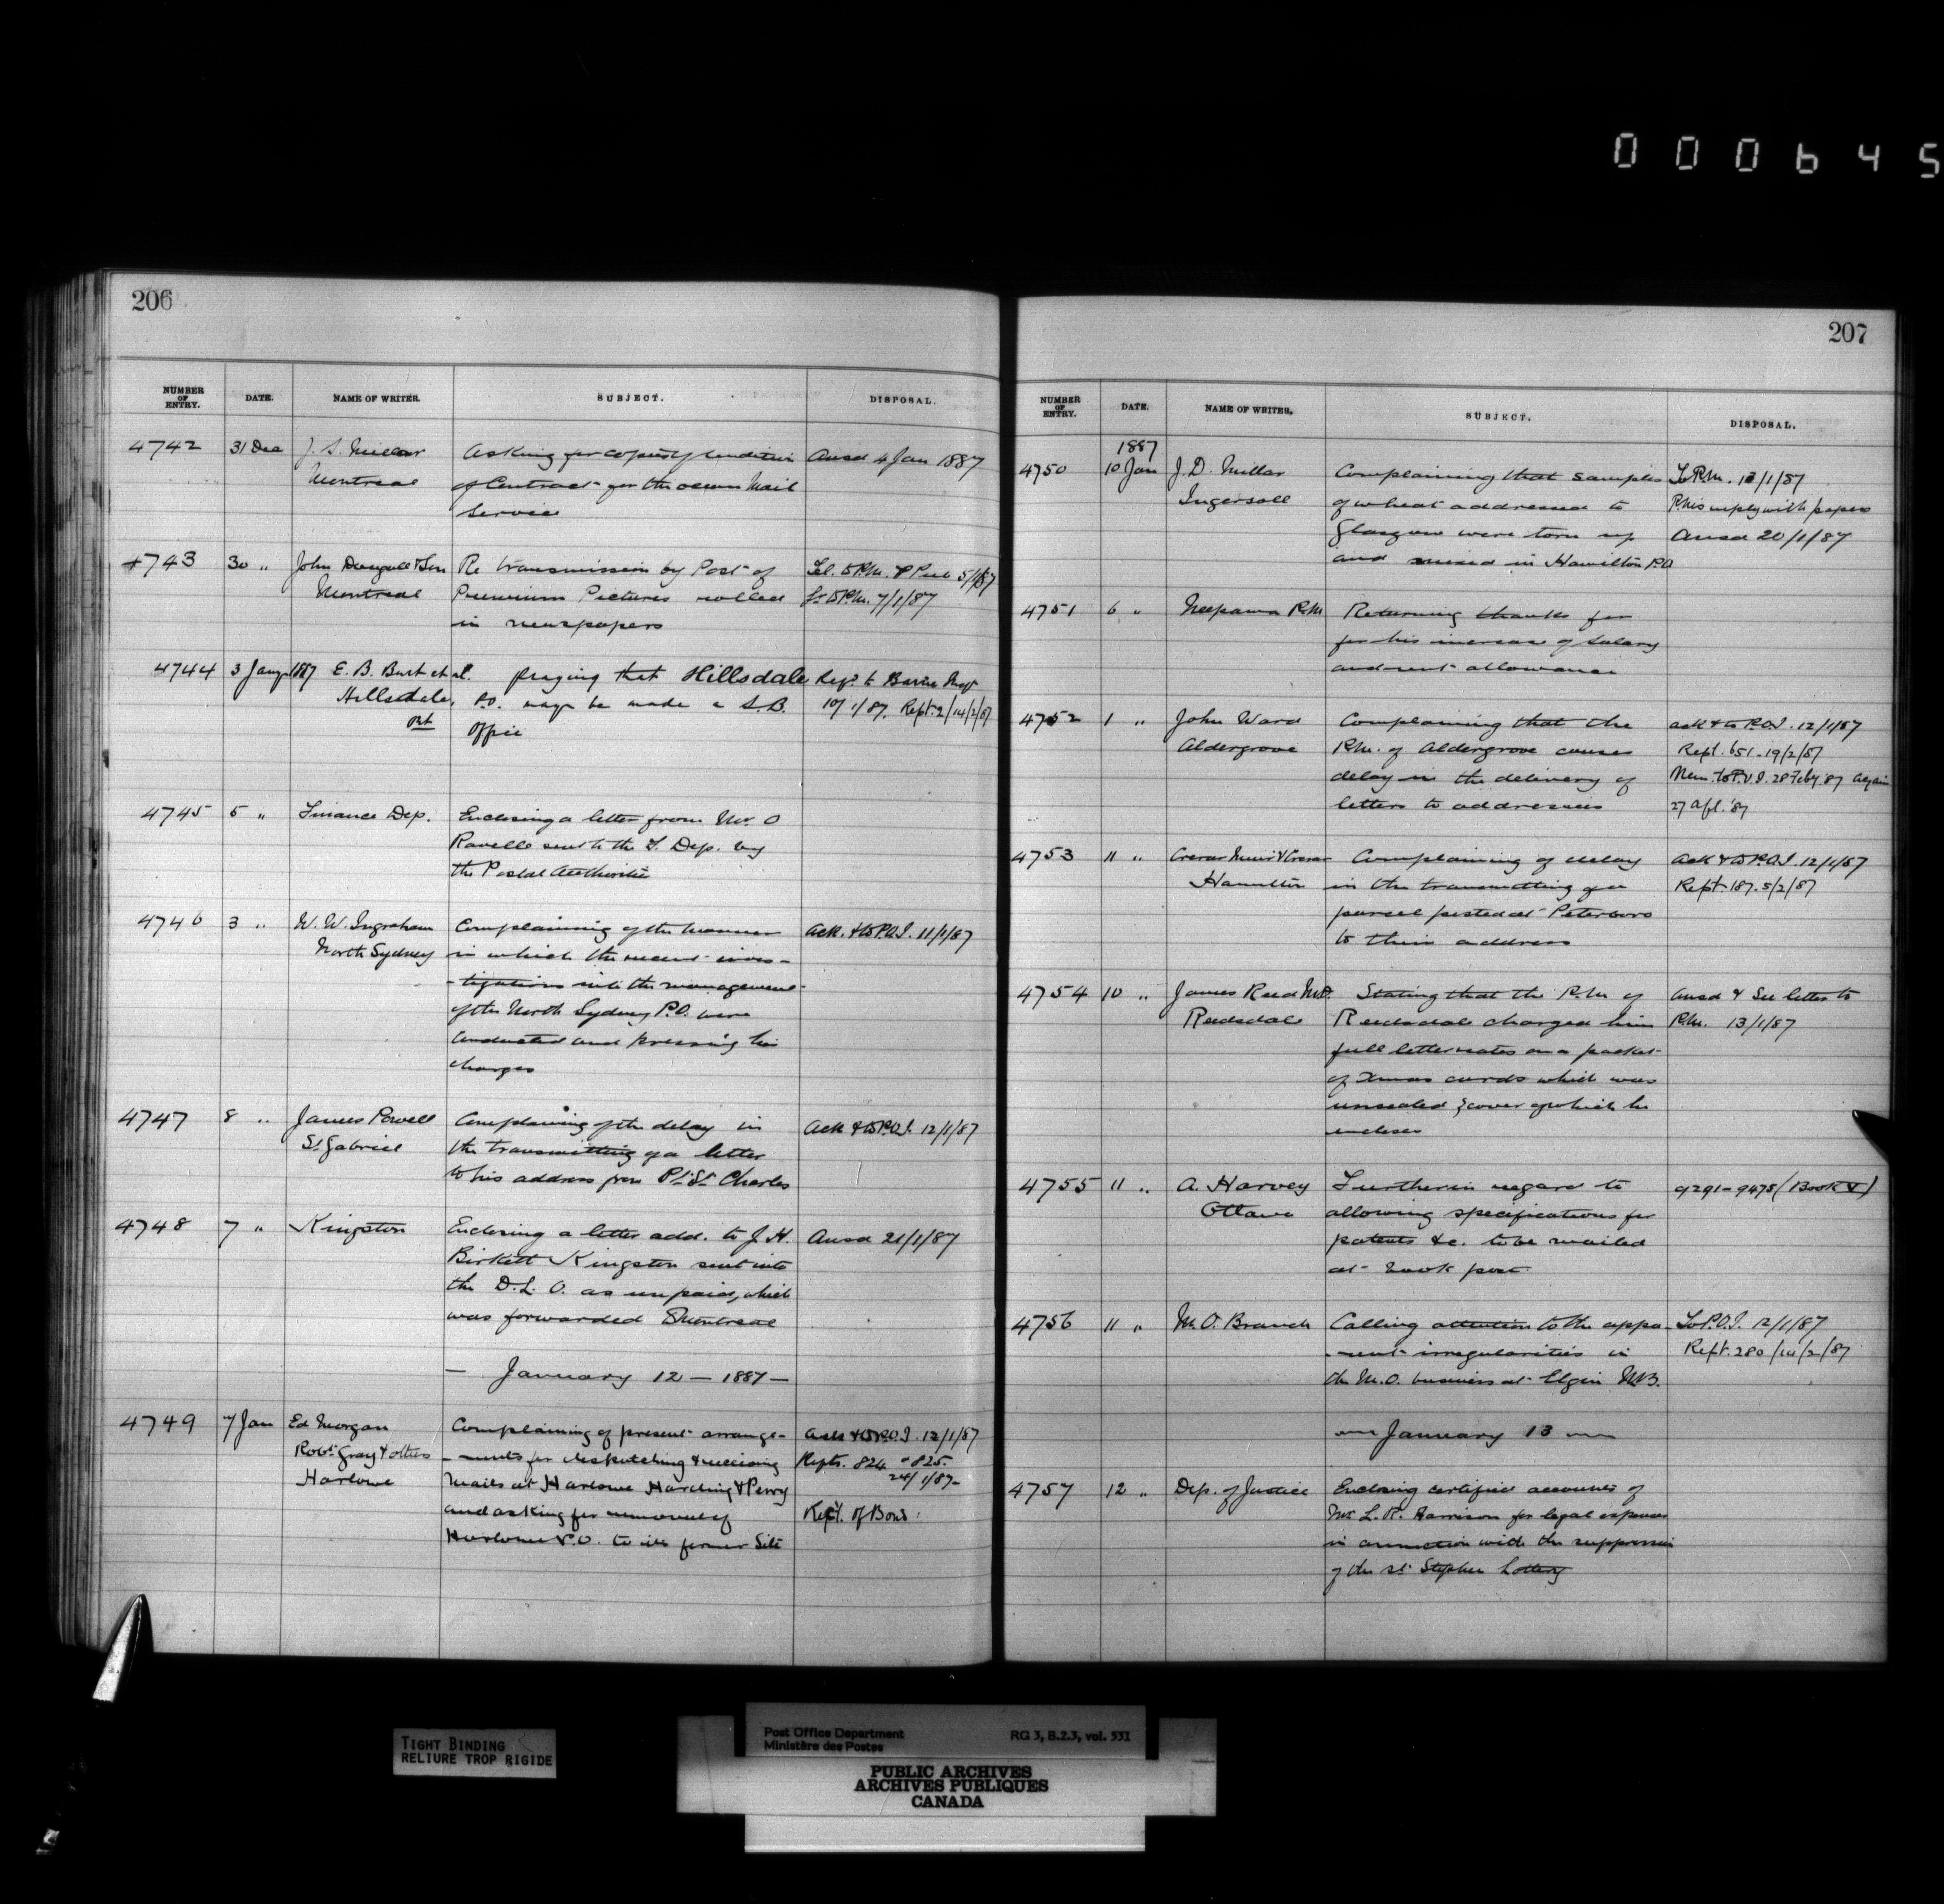 000645
206
NUMBER OF ENTRY. DATE. NAME OF WRITER. SUBJECT. DISPOSAL.
4742 31 Dec J. S. Millar Asking for copies of condition Ansd 4 Jan 1887
Montreal of Contract for the ocean Mail
Service
4743 30 " John Dougall & Son Re transmission by Post of Tel. to P.M. & Pub 5/1/87
Montreal Premium Pictures rolled Lr to P.M. 7/1/87
in newspapers
4744 3 Jany 1887 E. B. Burt et al. praying that Hillsdale Rep. to Barrie Insp
Hillsdale, P.O. may be made a S.B. 10/1/87. Rept. 2/14/2/87
Ont Office
4745 5 " Finance Dep. Enclosing a letter from Mr. O
Ravelle sent to the F. Dep. by
the Postal Authorities
4746 3 " W. W. Ingraham Complaining of the manner Ack. & to P.O.I. 11/1/87
North Sydney in which the recent inves-
-tigations into the management
of the North Sydney P.O. were
conducted and pressing his
charges
4747 8 " James Powell Complaining of the delay in Ack & to P.O.I. 12/1/87
St Gabriel the transmitting of a letter
to his address from Pt St Charles
4748 7 " Kingston Enclosing a letter add. to J. H. Ansd 21/1/87
Birkett Kingston sent into
the D. L. O. as unpaid, which
was forwarded Montreal
— January 12 — 1887 —
4749 7 Jan Ed Morgan Complaining of present arrange- Ack & to P.O.I. 12/1/87
Robt. Gray & others -ments for despatching & receiving Repts. 824 & 825.
Harlowe mails at Harlowe Harding & Perry 24/1/87-
and asking for removal of Rept. of Bond:
Harlowe P.O. to its former Site
207
NUMBER OF ENTRY. DATE. NAME OF WRITER. SUBJECT. DISPOSAL.
1887
4750 10 Jan J. D. Millar Complaining that samples To P.M. 13/1/87
Ingersoll of wheat addressed to P.M's reply with papers
Glasgow were torn up Ansd 20/1/87
and mixed in Hamilton P.O
4751 6 " Neepawa P.M Returning thanks for
for his increase of salary
and rent allowance
4752 1 " John Ward Complaining that the ack & to P.O.I. 12/1/87
Aldergrove P.M. of Aldergrove causes Rept. 651-19/2/87
delay in the delivery of Mem. to P.O.I. 28 Feby '87 again
letters to addressees 27 Apl. '87
4753 11 " Crerar Muir & Crerar Complaining of delay Ack & to P.O.I. 12/1/87
Hamilton in the transmitting of a Rept. 187. 5/2/87
parcel posted at Peterboro
to their address
4754 10 " James Reed M.P. Stating that the P.M. of Ansd & See letter to
Reedsdale Reedsdale charged him P.M. 13/1/87
full letter rates on a packet
of Xmas cards which was
unsealed & cover of which he
encloses
4755 11 " A. Harvey Further in regard to 9291-9475 (Book V)
Ottawa allowing specifications for
patents &c. to be mailed
at book post
4756 11 " M.O. Branch Calling attention to the appa- To P.O.I. 12/1/87
-rent irregularities in Rept. 280/14/2/87
the M.O. business at Elgin N.B.
— January 13 —
4757 12 " Dep. of Justice Enclosing certified accounts of
Mr. L. R. Harrison for legal expenses
in connection with the suppression
of the St Stephen Lottery
TIGHT BINDING
RELIURE TROP RIGIDE
Post Office Department RG 3, B.2.3, vol. 531
Ministère des Postes
PUBLIC ARCHIVES
ARCHIVES PUBLIQUES
CANADA